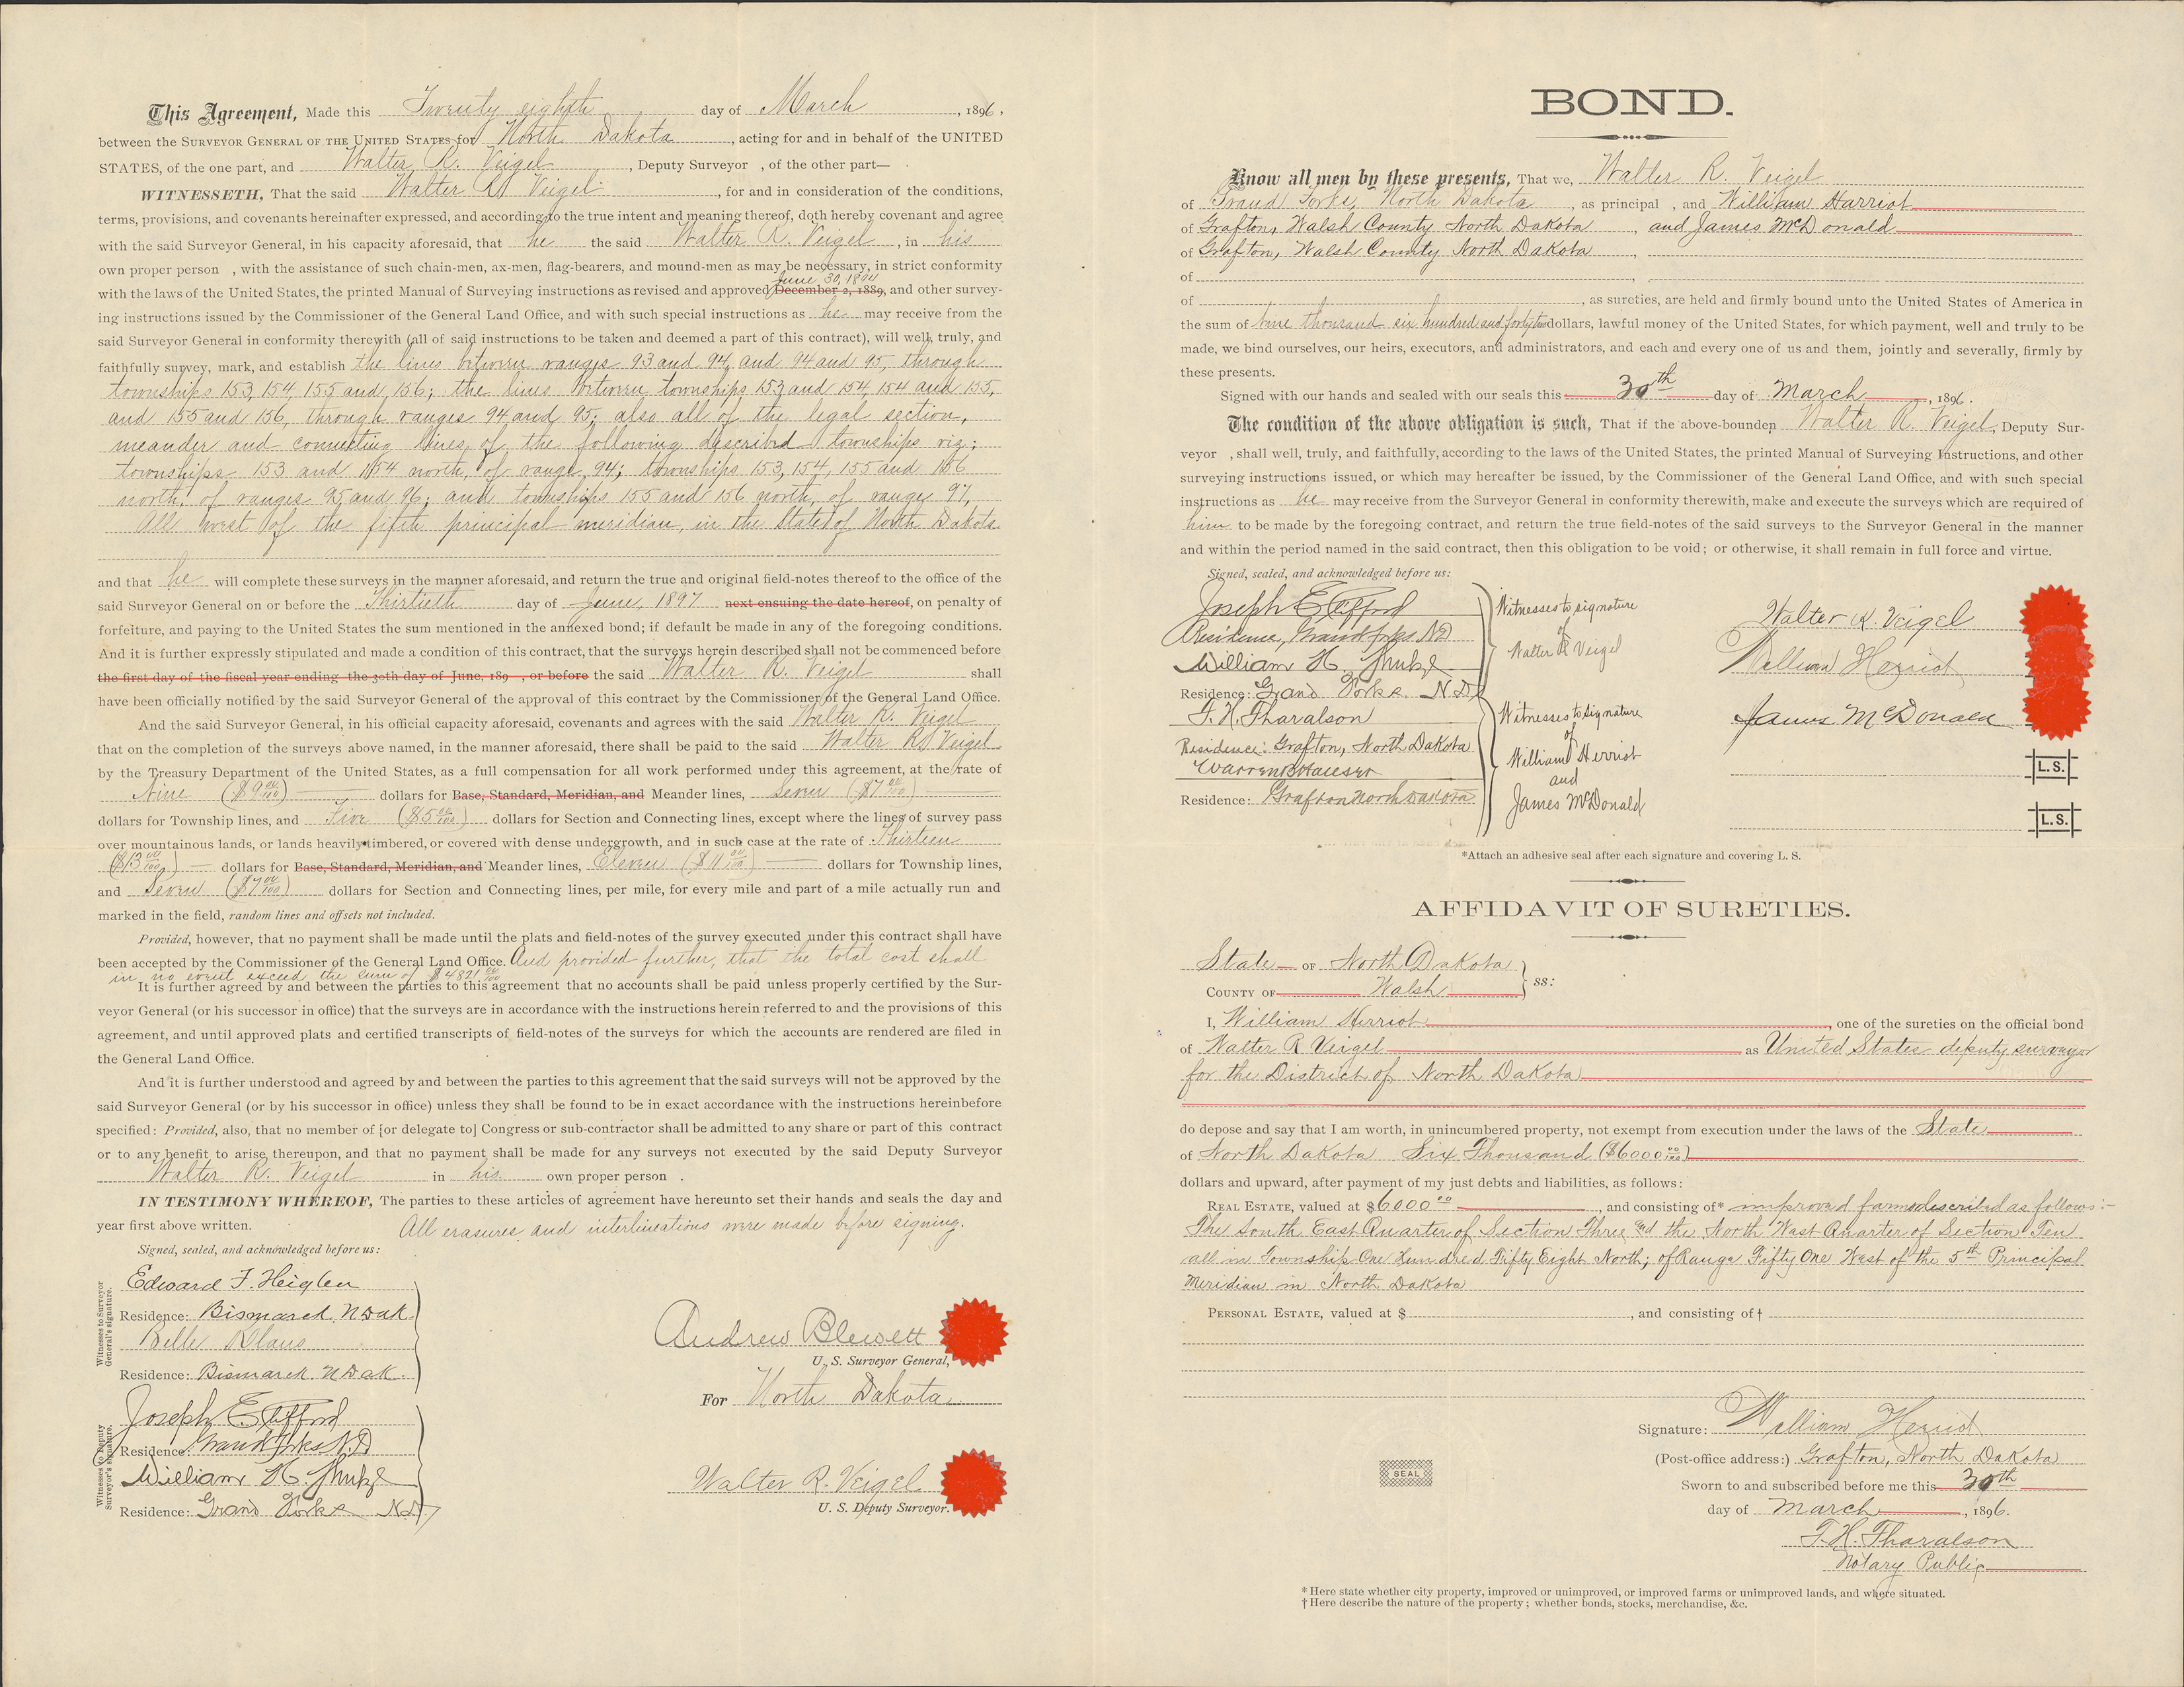 This Agreement, Made this Twenty eighth day of March, 1896,
between the SURVEYOR GENERAL OF THE UNITED STATES for North Dakota, acting for and in behalf of the UNITED
STATES, of the one part, and Walter R. Veigel, Deputy Surveyor , of the other part—
WITNESSETH, That the said Walter R. Veigel, for and in consideration of the conditions,
terms, provisions, and covenants hereinafter expressed, and according to the true intent and meaning thereof, doth hereby covenant and agree
with the said Surveyor General, in his capacity aforesaid, that he the said Walter R. Veigel, in his
own proper person , with the assistance of such chain-men, ax-men, flag-bearers, and mound-men as may be necessary, in strict conformity
June 30, 1894
with the laws of the United States, the printed Manual of Surveying instructions as revised and approved December 2, 1889, and other survey-
ing instructions issued by the Commissioner of the General Land Office, and with such special instructions as he may receive from the
said Surveyor General in conformity therewith (all of said instructions to be taken and deemed a part of this contract), will well, truly, and
faithfully survey, mark, and establish the lines between ranges 93 and 94, and 94 and 95, through
townships 153, 154, 155 and 156; the lines between townships 153 and 154, 154 and 155,
and 155 and 156, through ranges 94 and 95; also all of the legal section,
meander and connecting lines of the following described townships viz;
townships 153 and 154 north, of range 94; townships 153, 154, 155 and 156
north, of ranges 95 and 96; and townships 155 and 156 north, of range 97,
All west of the fifth principal meridian, in the State of North Dakota
and that he will complete these surveys in the manner aforesaid, and return the true and original field-notes thereof to the office of the
said Surveyor General on or before the Thirtieth day of June, 1897 next ensuing the date hereof, on penalty of
forfeiture, and paying to the United States the sum mentioned in the annexed bond; if default be made in any of the foregoing conditions.
And it is further expressly stipulated and made a condition of this contract, that the surveys herein described shall not be commenced before
the first day of the fiscal year ending the 30th day of June, 189 , or before the said Walter R. Veigel shall
have been officially notified by the said Surveyor General of the approval of this contract by the Commissioner of the General Land Office.
And the said Surveyor General, in his official capacity aforesaid, covenants and agrees with the said Walter R. Veigel
that on the completion of the surveys above named, in the manner aforesaid, there shall be paid to the said Walter R. Veigel
by the Treasury Department of the United States, as a full compensation for all work performed under this agreement, at the rate of
Nine ($9 00/100) dollars for Base, Standard, Meridian, and Meander lines, Seven ($7 00/100)
dollars for Township lines, and Five ($5 00/100) dollars for Section and Connecting lines, except where the lines of survey pass
over mountainous lands, or lands heavily timbered, or covered with dense undergrowth, and in such case at the rate of Thirteen
($13 00/100) dollars for Base, Standard, Meridian, and Meander lines, Eleven ($11 00/100) dollars for Township lines,
and Seven ($7 00/100) dollars for Section and Connecting lines, per mile, for every mile and part of a mile actually run and
marked in the field, random lines and offsets not included.
Provided, however, that no payment shall be made until the plats and field-notes of the survey executed under this contract shall have
been accepted by the Commissioner of the General Land Office. And provided further, that the total cost shall
in no event exceed the sum of $4821 00/100
It is further agreed by and between the parties to this agreement that no accounts shall be paid unless properly certified by the Sur-
veyor General (or his successor in office) that the surveys are in accordance with the instructions herein referred to and the provisions of this
agreement, and until approved plats and certified transcripts of field-notes of the surveys for which the accounts are rendered are filed in
the General Land Office.
And it is further understood and agreed by and between the parties to this agreement that the said surveys will not be approved by the
said Surveyor General (or by his successor in office) unless they shall be found to be in exact accordance with the instructions hereinbefore
specified: Provided, also, that no member of [or delegate to] Congress or sub-contractor shall be admitted to any share or part of this contract
or to any benefit to arise thereupon, and that no payment shall be made for any surveys not executed by the said Deputy Surveyor
Walter R. Veigel in his own proper person .
IN TESTIMONY WHEREOF, The parties to these articles of agreement have hereunto set their hands and seals the day and
year first above written. All erasures and interlineations were made before signing.
Signed, sealed, and acknowledged before us:
Witnesses to Surveyor General's signature.
Edward F. Heiglen
Residence: Bismarck, N Dak.
Belle Klaus
Residence: Bismarck N Dak.
Andrew Blewett
U. S. Surveyor General,
For North Dakota
Witnesses to Deputy Surveyor's signature.
Joseph E Clifford
Residence: Grand Forks N.D.
William H.
Residence: Grand Forks N.D.
Walter R. Veigel
U. S. Deputy Surveyor.
BOND.
Know all men by these presents, That we, Walter R. Veigel
of Grand Forks, North Dakota, as principal , and William Harriot
of Grafton, Walsh County North Dakota, and James McDonald
of Grafton, Walsh County North Dakota,
of
of , as sureties, are held and firmly bound unto the United States of America in
the sum of nine thousand six hundred and forty two dollars, lawful money of the United States, for which payment, well and truly to be
made, we bind ourselves, our heirs, executors, and administrators, and each and every one of us and them, jointly and severally, firmly by
these presents.
Signed with our hands and sealed with our seals this 30th day of March, 1896.
The condition of the above obligation is such, That if the above-bounden Walter R. Veigel, Deputy Sur-
veyor , shall well, truly, and faithfully, according to the laws of the United States, the printed Manual of Surveying Instructions, and other
surveying instructions issued, or which may hereafter be issued, by the Commissioner of the General Land Office, and with such special
instructions as he may receive from the Surveyor General in conformity therewith, make and execute the surveys which are required of
him to be made by the foregoing contract, and return the true field-notes of the said surveys to the Surveyor General in the manner
and within the period named in the said contract, then this obligation to be void; or otherwise, it shall remain in full force and virtue.
Signed, sealed, and acknowledged before us:
Joseph E Clifford
Residence, Grand Forks ND
William H.
Residence: Grand Forks N.D.
Witnesses to signature
of
Walter R Veigel
T. H. Tharalson
Residence: Grafton, North Dakota
Warren B Hauser
Residence: Grafton North Dakota
Witnesses to signature
of
William Herriot
and
James McDonald
Walter R. Veigel
William Herriot
James McDonald
L.S.
L.S.
*Attach an adhesive seal after each signature and covering L. S.
AFFIDAVIT OF SURETIES.
State OF North Dakota
COUNTY OF Walsh ss:
I, William Herriot, one of the sureties on the official bond
of Walter R Veigel as United States deputy surveyor
for the District of North Dakota
do depose and say that I am worth, in unincumbered property, not exempt from execution under the laws of the State
of North Dakota Six Thousand ($6000 00/100)
dollars and upward, after payment of my just debts and liabilities, as follows:
REAL ESTATE, valued at $6000 00, and consisting of* improved farms described as follows:-
The South East Quarter of Section Three and the North West Quarter of Section Ten
all in Township One Hundred Fifty Eight North; of Range Fifty One West of the 5th Principal
Meridian in North Dakota
PERSONAL ESTATE, valued at $ , and consisting of†
Signature: William Herriot
(Post-office address:) Grafton, North Dakota
SEAL
Sworn to and subscribed before me this 30th
day of March, 1896.
T. H. Tharalson
Notary Public
* Here state whether city property, improved or unimproved, or improved farms or unimproved lands, and where situated.
† Here describe the nature of the property; whether bonds, stocks, merchandise, &c.